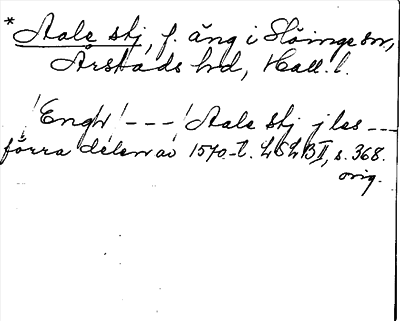 * Aale stj, f. äng i Slöinge sn,
Årstads hd, Hall. l.
'Engh' - - - 'Aale stj j les - - -
förra delen av 1570-t. HSH BII, s. 368.
orig.